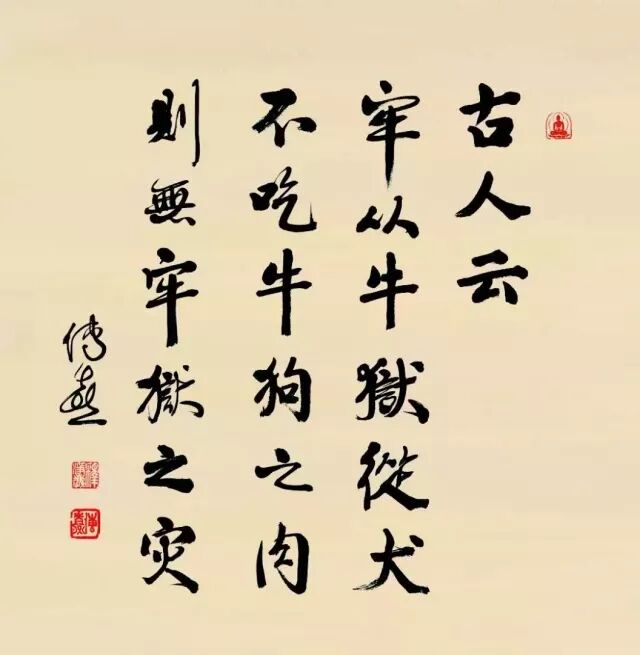 古人云
牢从牛獄從犬
不吃牛狗之肉
則無牢獄之灾
傳喜